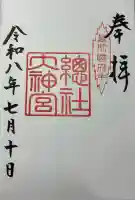 奉拝
總社
大神宮
令和八年七月十日